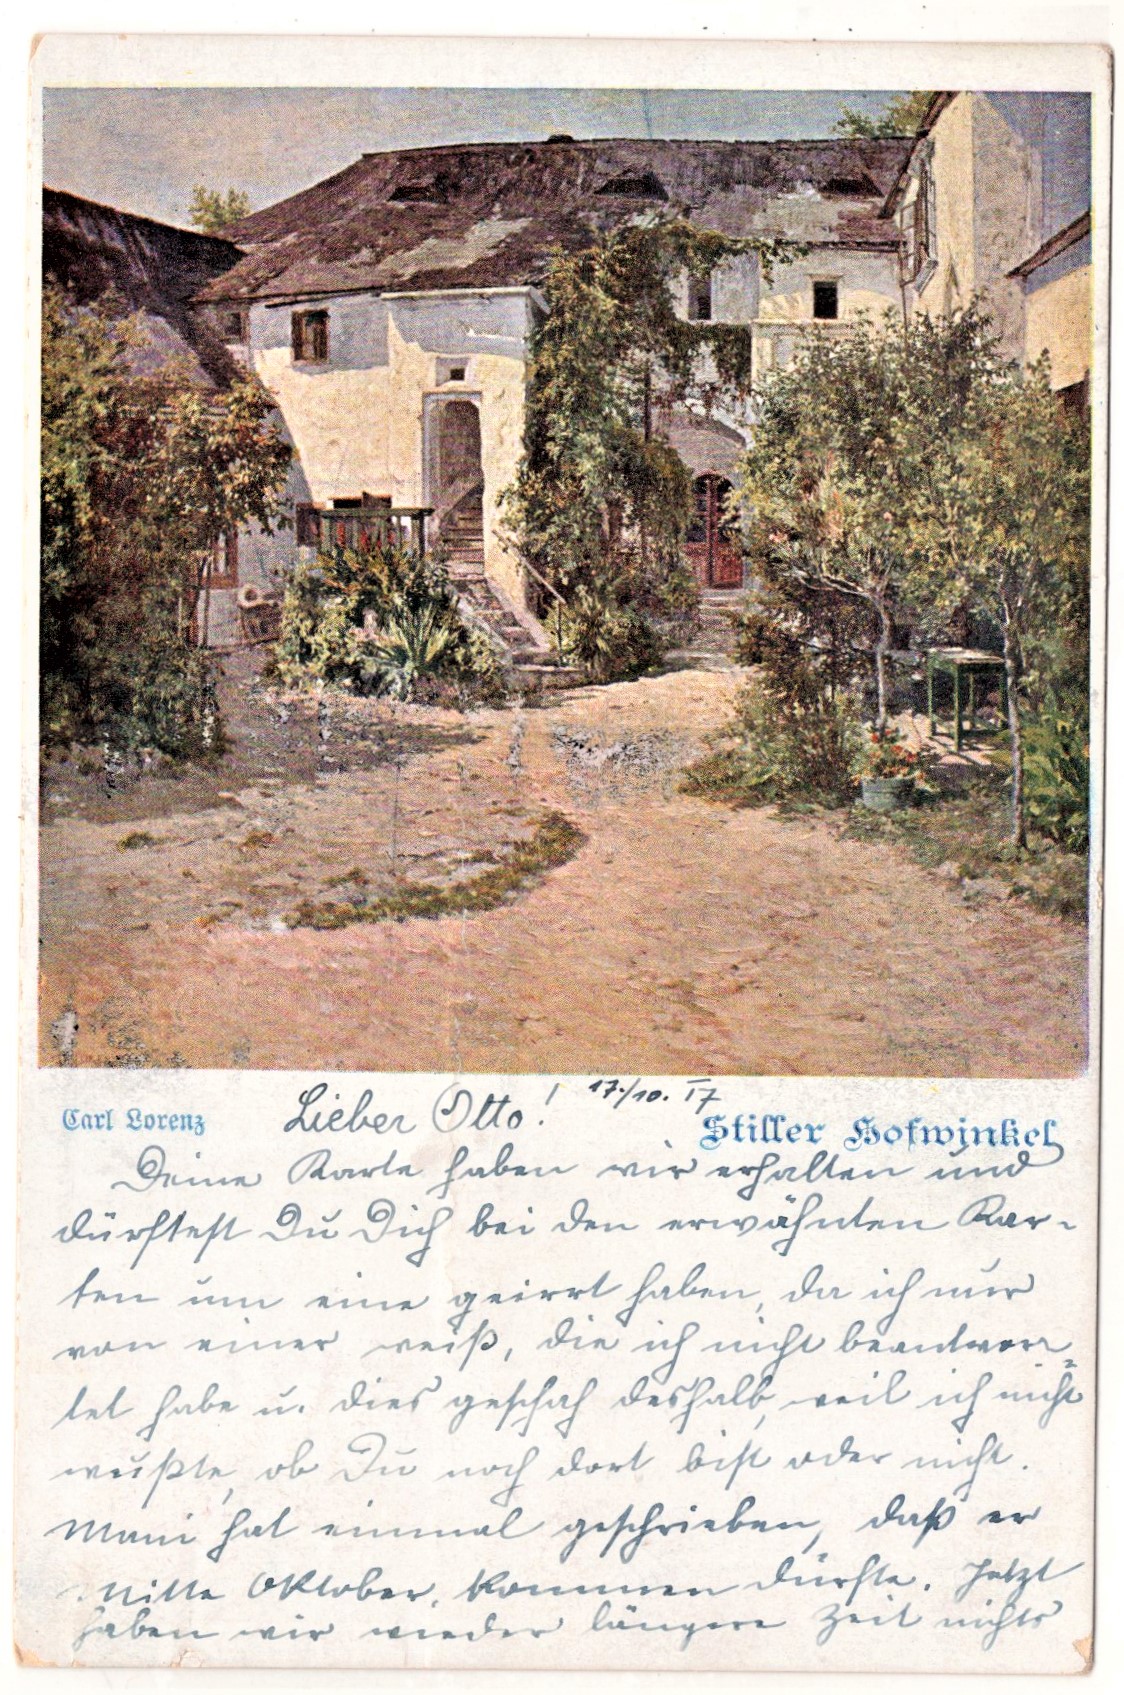 Carl Lorenz
Lieber Otto! 17./10. 17
Stiller Hofwinkel
Deine Karte haben wir erhalten und
dürftest Du Dich bei den erwähnten Kar-
ten um eine geirrt haben, da ich nur
von einer weiß, die ich nicht beantwor-
tet habe u. dies geschah deshalb, weil ich nicht
wußte, ob Du noch dort bist oder nicht.
Mani hat einmal geschrieben, daß er
Mitte Oktober, kommen dürfte. Jetzt
haben wir wieder längere Zeit nichts